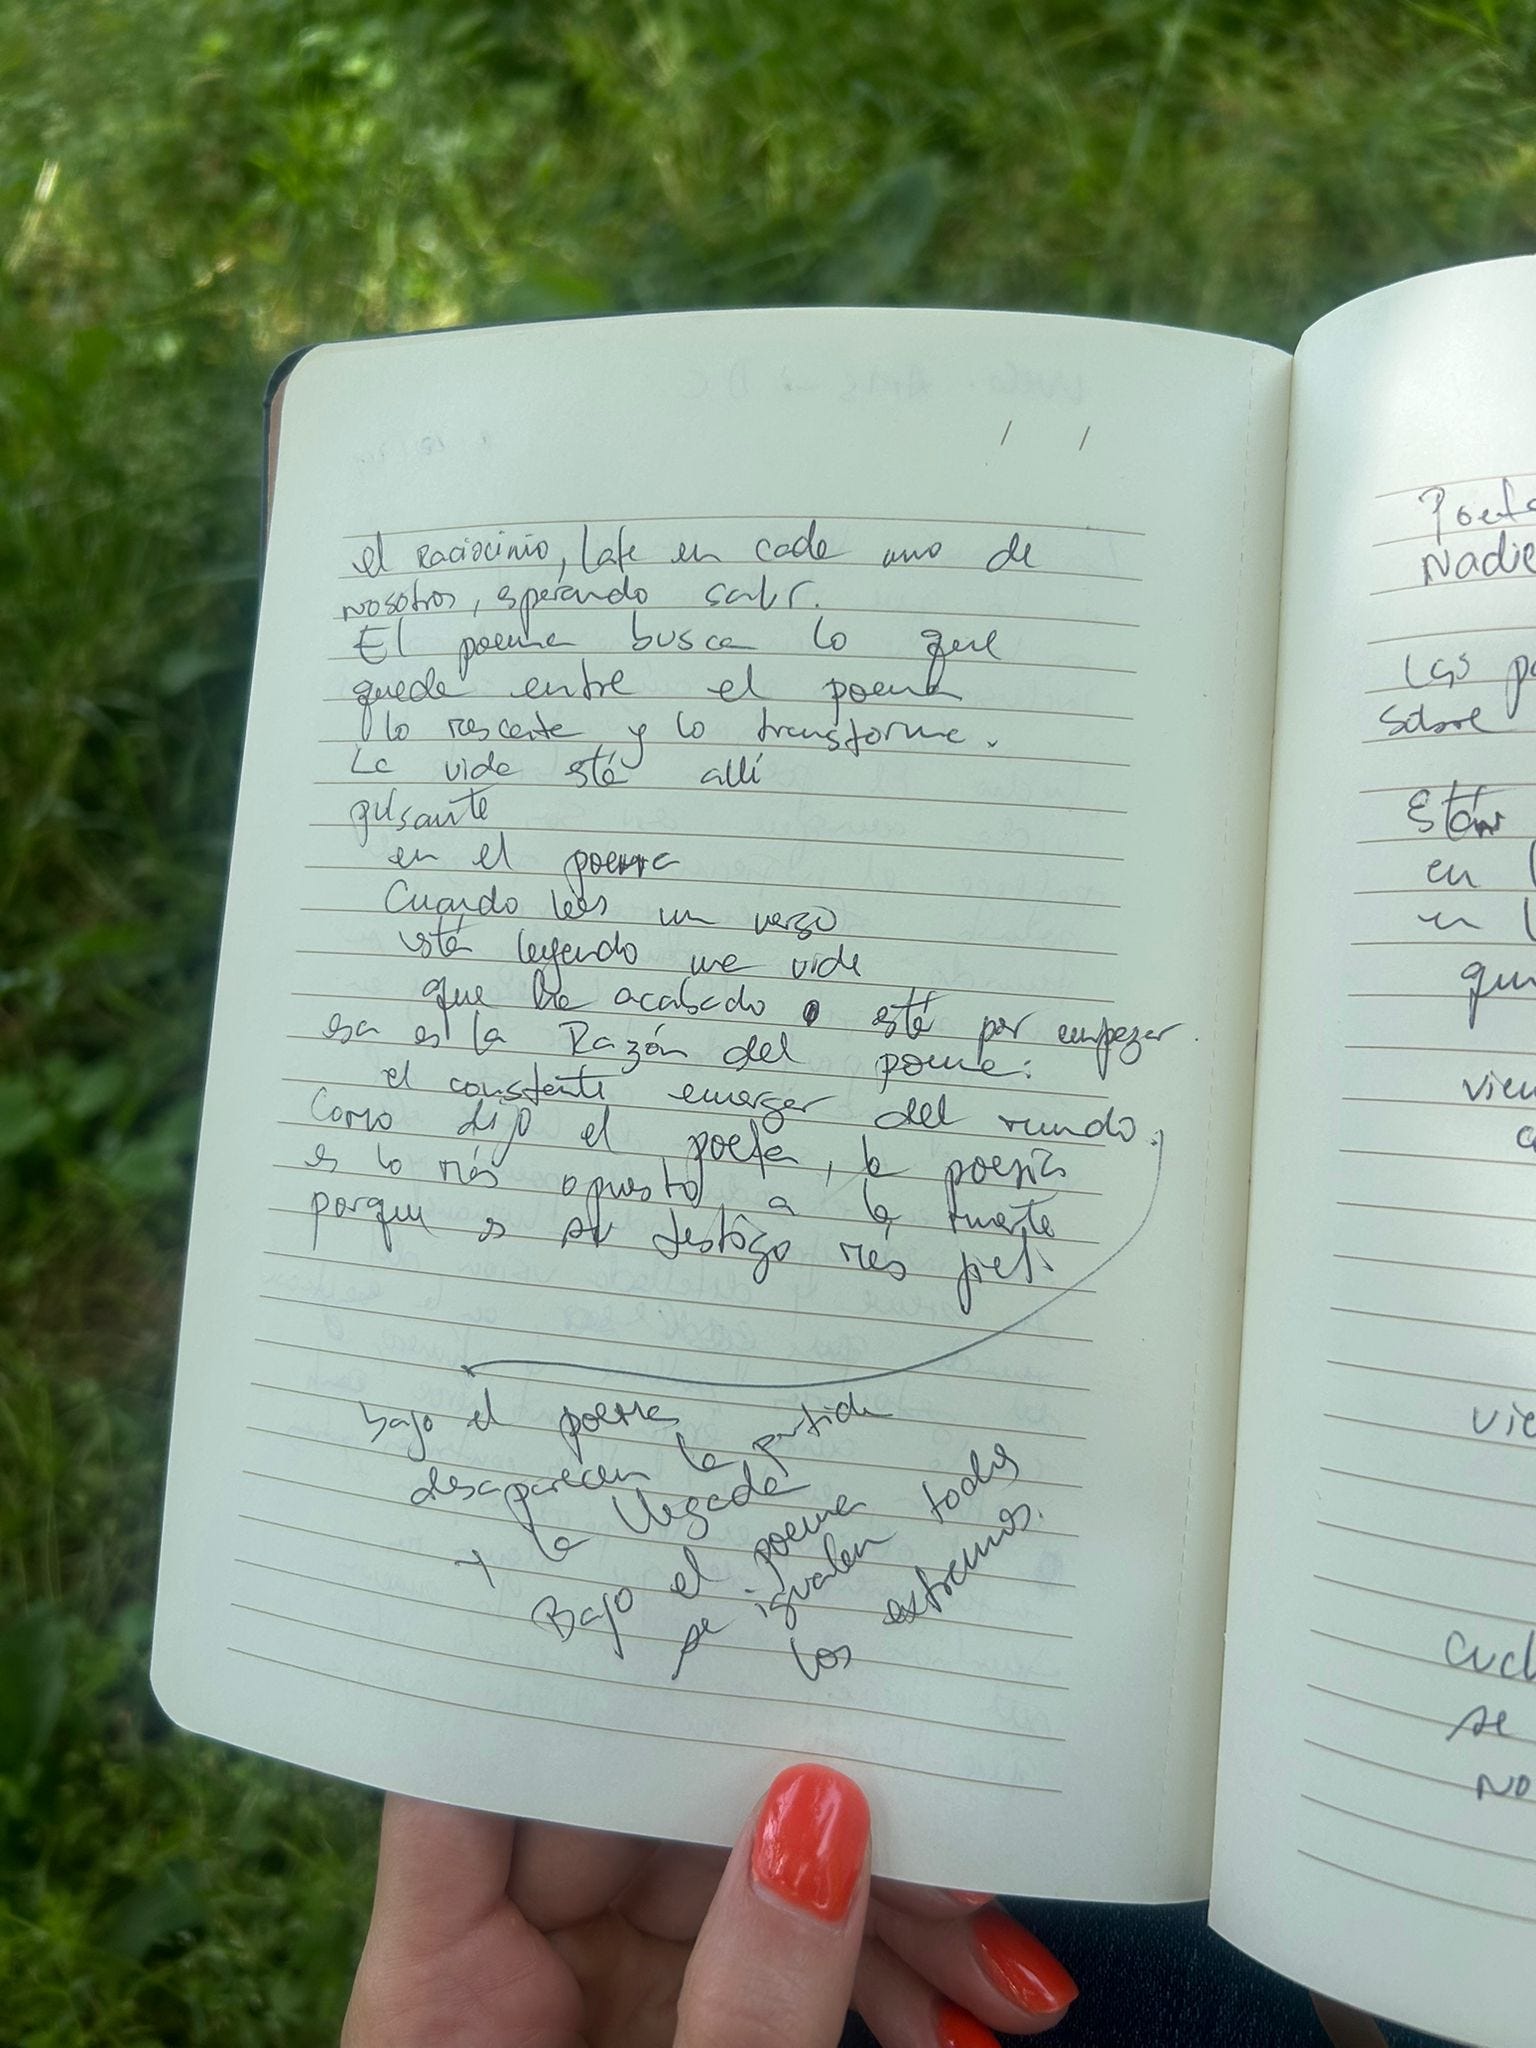 el raciocinio, late en cada uno de
nosotros, esperando salir.
El poema busca lo que
quede entre el poema
lo rescate y lo transforme.
La vida está allí
pulsante
en el poema
Cuando lees un verso
estás leyendo una vida
que ha acabado o está por empezar.
esa es la Razón del poema:
el constante emerger del mundo.
Como dijo el poeta, la poesía
es lo más opuesto a la muerte
porque es su testigo más fiel.
bajo el poema
desaparecen la partida
y la llegada
Bajo el poema
se igualan todos
los extremos.
Poeta
Nadie
Las
sobre
Están
en
en
se
no